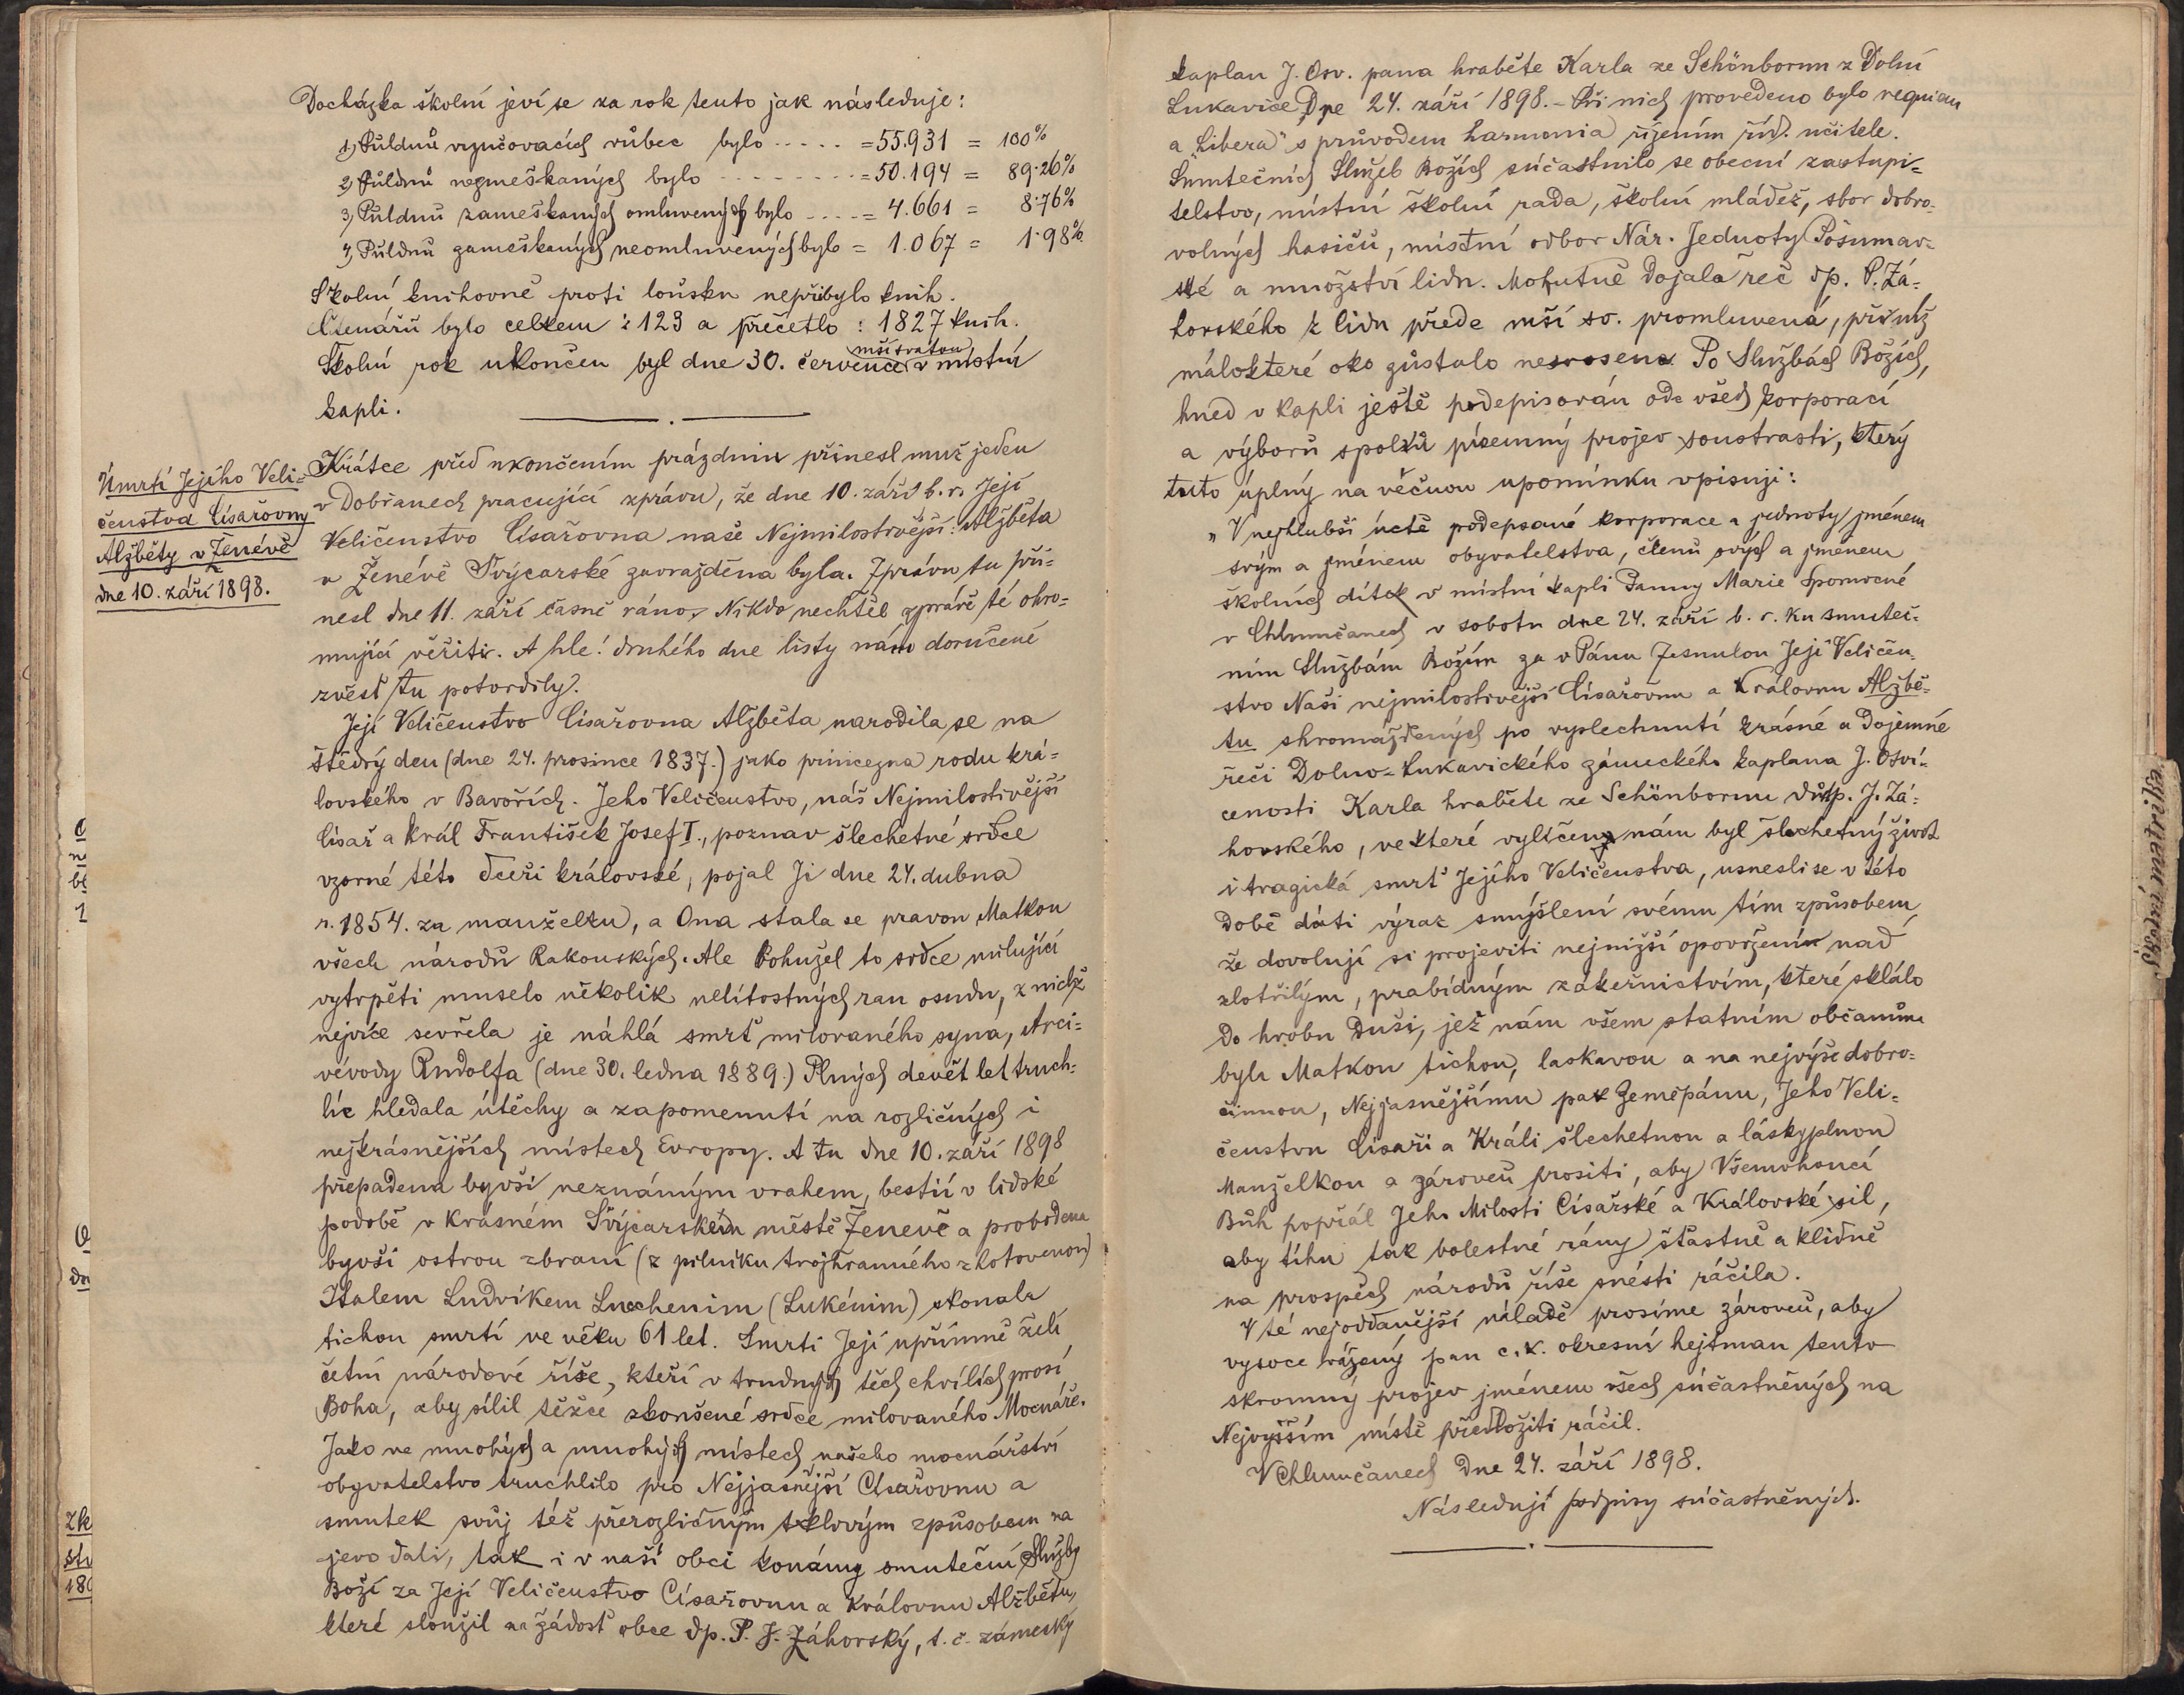 Docházka školní jeví se za rok tento jak následuje:
1) Půldnů vyučovacích vůbec bylo ..... = 55.931 = 100%
2) Půldnů nezmeškaných bylo ........ = 50.194 = 89·26%
3) Půldnů zameškaných omluvených bylo .... = 4.661 = 8·76%
4) Půldnů zameškaných neomluvených bylo = 1.067 = 1·98%
Školní knihovně proti loňsku nepřibylo knih.
Čtenářů bylo celkem : 123 a přečetlo : 1827 knih.
mší svatou
Školní rok ukončen byl dne 30. července v místní
kapli.
Úmrtí Jejího Veli-
čenstva Císařovny
Alžběty v Ženévě
dne 10. září 1898.
Krátce před ukončením prázdnin přinesl muž jeden
v Dobřanech pracující zprávu, že dne 10. září b. r. Její
Veličenstvo Císařovna naše Nejmilostivější: Alžběta
v Ženévě Švýcarské zavražděna byla. Zprávu tu při-
nesl dne 11. září časně ráno. Nikdo nechtěl zprávě té ohro-
mující věřiti. A hle! druhého dne listy nám doručené
zvěsť tu potvrdily.
Její Veličenstvo Císařovna Alžběta narodila se na
štědrý den (dne 24. prosince 1837.) jako princezna rodu krá-
lovského v Bavořích. Jeho Veličenstvo, náš Nejmilostivější
Císař a král František Josef I., poznav šlechetné srdce
vzorné této dceři královské, pojal Ji dne 24. dubna
r. 1854. za manželku, a Ona stala se pravou Matkou
všech národů Rakouských. Ale Bohužel to srdce milující
vytrpěti muselo několik nelítostných ran osudu, z nichž
nejvíce sevřela je náhlá smrť milovaného syna, Arci-
vévody Rudolfa (dne 30. ledna 1889.) Plných devět let truch-
líc hledala útěchy a zapomenutí na rozličných i
nejkrásnějších místech Evropy. A tu dne 10. září 1898
přepadena byvši neznámým vrahem, bestií v lidské
podobě v krásném Švýcarském městě Ženevě a probodena
byvši ostrou zbraní (z pilníku trojhranného zhotovenou)
Italem Ludvíkem Luechenim (Lukénim) skonala
tichou smrtí ve věku 61 let. Smrti Její upřímně želí
četní národové říše, kteří v trudných těch chvílích prosí
Boha, aby sílil těžce zkoušené srdce milovaného Mocnáře.
Jako na mnohých a mnohých místech našeho mocnářství
obyvatelstvo truchlilo pro Nejjasnější Císařovnu a
smutek svůj též přerozličným tklivým způsobem na
jevo dali, tak i v naší obci konány smuteční Služby
Boží za Její Veličenstvo Císařovnu a královnu Alžbětu,
které sloužil na žádosť obce dp. P. J. Záhorský, t. č. zámecký
kaplan J. Osv. pana hraběte Karla ze Schönbornu z Dolní
Lukavice Dne 24. září 1898. – Při nich provedeno bylo requiem
a „Libera" s průvodem harmonia řízením říd. učitele.
Smutečních Služeb Božích súčastnilo se obecní zastupi-
telstvo, místní školní rada, školní mládež, sbor dobro-
volných hasičů, místní odbor Nár. Jednoty Pošumav-
ské a množství lidu. Mohutně dojala řeč dp. P. Zá-
horského k lidu přede mší sv. promluvená, při níž
málokteré oko zůstalo neoroseno. Po Službách Božích,
hned v kapli ještě podepisován ode všech korporací
a výborů spolků písemný projev soustrasti, který
tuto úplný na věčnou upomínku vpisuji:
„V nejhlubší úctě podepsané korporace a jednoty jménem
svým a jménem obyvatelstva, členů svých a jménem
školních dítek v místní kapli Panny Marie Spomocné
v Chlumčanech v sobotu dne 24. září b. r. ku smuteč-
ním Službám Božím za v Pánu Zesnulou Její Veličen-
stvo Naši nejmilostivější Císařovnu a Královnu Alžbě-
tu shromážděných po vyslechnutí krásné a dojemné
řeči Dolno-Lukavického zámeckého kaplana J. Osví-
cenosti Karla hraběte ze Schönbornu důstp. J. Zá-
horského, ve které vylíčen nám byl šlechetný život
i tragická smrť Jejího Veličenstva, usnesli se v této
době dáti výraz smýšlení svému tím způsobem,
že dovolují si projeviti nejnižší opovržení nad
zlotřilým, prabídným zákeřnictvím, které sklálo
do hrobu Duši, jež nám všem statním občanům
byla Matkou tichou, laskavou a na nejvýše dobro-
činnou, Nejjasnějšímu pak Zeměpánu, Jeho Veli-
čenstvu Císaři a Králi šlechetnou a láskyplnou
Manželkou a zároveň prositi, aby Všemohoucí
Bůh popřál Jeho Milosti Císařské a Královské sil,
aby tíhu tak bolestné rány šťastně a klidně
na prospěch národů říše snésti ráčila.
V té nejoddanější náladě prosíme zároveň, aby
vysoce vážený pan c. k. okresní hejtman tento
skromný projev jménem všech súčastněných na
Nejvyšším místě předložiti ráčil.
V Chlumčanech dne 24. září 1898.
Následují podpisy súčastněných.
Školní matrika